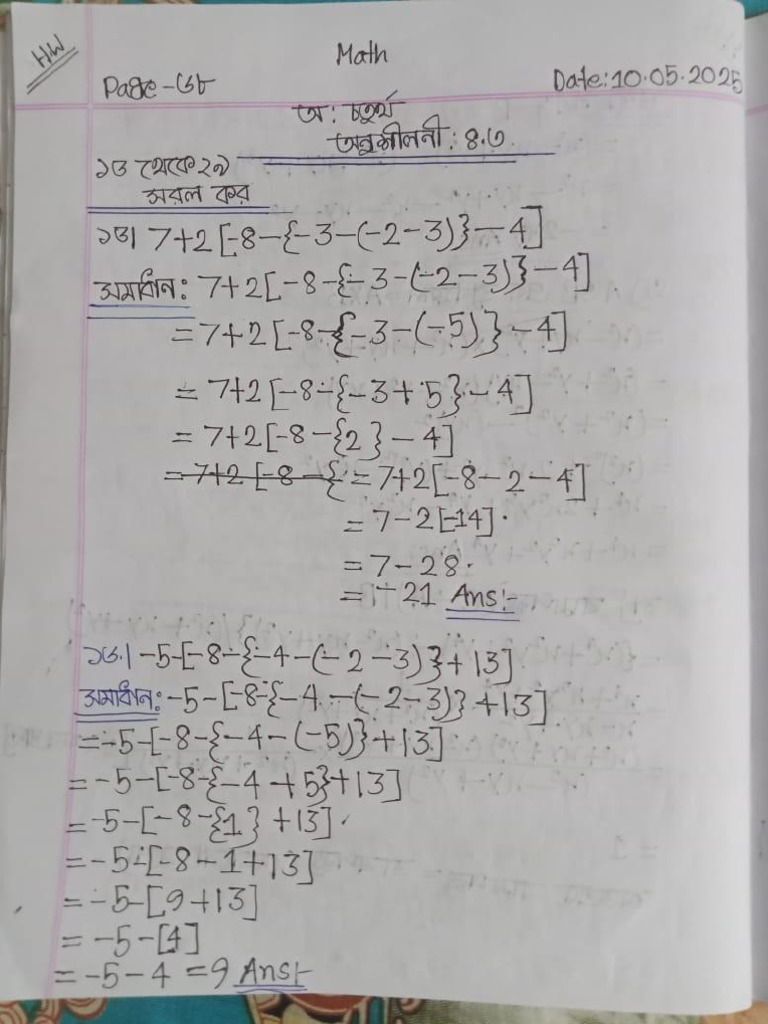 HW
Math
Page-৩৮
Date: 10.05.2025
অ: চতুর্থ
অনুশীলনী: ৪.৩
১৩ থেকে ২৯
সরল কর
১৩| 7+2[-8-{-3-(-2-3)}-4]
সমাধান: 7+2[-8-{-3-(-2-3)}-4]
=7+2[-8-{-3-(-5)}-4]
= 7+2[-8-{-3+5}-4]
= 7+2[-8-{2}-4]
= 7+2[-8-{ = 7+2[-8-2-4]
= 7-2[-14].
= 7-28.
= -21 Ans:-
১৩.| -5-[-8-{-4-(-2-3)}+13]
সমাধান: -5-[-8-{-4-(-2-3)}+13]
=-5-[-8-{-4-(-5)}+13]
= -5-[-8-{-4+5}+13]
= -5-[-8-{1}+13].
= -5-[-8-1+13]
= -5-[9+13]
= -5-[4]
= -5-4 =9 Ans:-